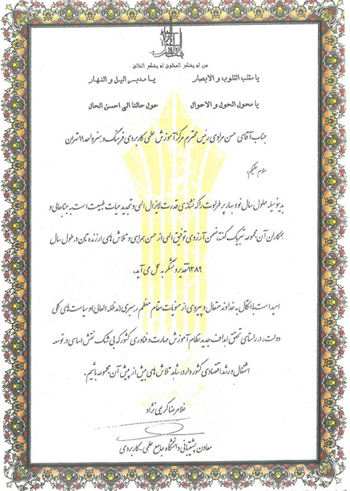 من لم یشکر المخلوق لم یشکر الخالق
یا مقلب القلوب و الابصار یا مدبر الیل و النهار
یا محول الحول و الاحوال حول حالنا الی احسن الحال
جناب آقای حسن مرادی رئیس محترم مرکز آموزش علمی کاربردی فرهنگ و هنر واحد ۱۱ تهران
سلام علیکم؛
بدینوسیله حلول سال نو و بهار پر طراوت را که نشانه ی قدرت لایزال الهی و تجدید حیات طبیعت است به جنابعالی و
همکاران آن مجموعه تبریک گفته ضمن آرزوی توفیق الهی از حسن همراهی و تلاش های ارزنده تان در طول سال
۱۳۸۹ تقدیر و تشکر به عمل می آید.
امید است با اتکال به خداوند متعال و پیروی از منویات مقام معظم رهبری مد ظله العالی و سیاست های کلی
دولت، در راستای تحقق اهداف جدید نظام آموزش مهارت و فناوری کشور که بی شک نقش اساسی در توسعه
اشتغال و رشد اقتصادی کشور دارد، شاهد تلاش های بیش از پیش آن مجموعه باشیم.
غلامرضا کریمی نژاد
معاون پشتیبانی دانشگاه جامع علمی - کاربردی